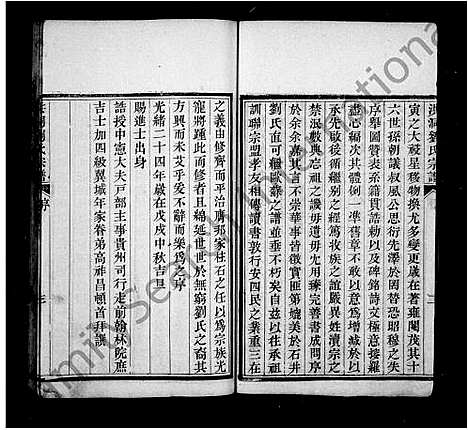 洪洞劉氏宗譜
寅之大祲星移物換尤多變更歲在著雍閹茂其十
六世孫朝議叔風公思衍先澤於罔替恐昭穆之失
序畢圖贊表系籍貫誥勅以及碑銘詩文極意搜羅
盡心編次其體例一準舊章不敢以意為增減於以
承先啟後循纚別之經篤收族之誼嚴異姓瀆宗之
禁泯數典忘祖之譏毋遺毋尤用臻完善書成問序
於余余嘉其言不崇華事皆徵實匪第媲美於石井
劉氏直可與歐蘇之譜並垂不朽矣自茲以往承祖
訓聯宗盟孝友相傳讀書敦行安四民之業重三在
之義由修齊而平治膺邦家柱石之任以為宗族光
寵將踵此而修者且綿延世世於無窮劉氏之裔其
方興而未艾乎爰不辭而樂為之序
光緒二十四年歲在戊戌中秋吉旦
賜進士出身
誥授中憲大夫戶部主事貴州司行走前翰林院庶
吉士加四級翼城年家眷弟高祚昌頓首拜譔
序
Family Search International